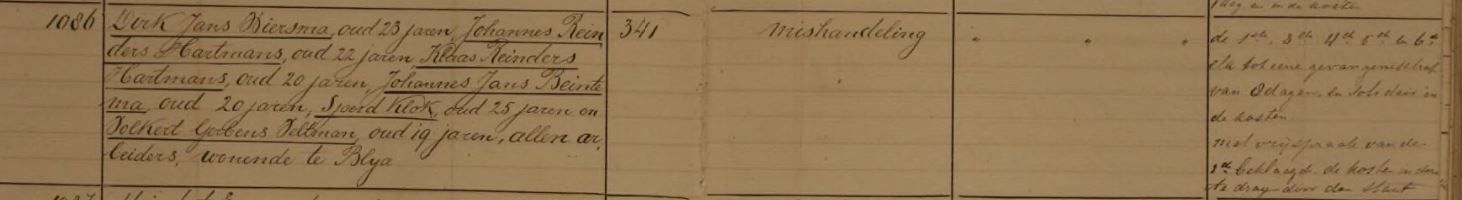 1086
Dirk Jans Biersma, oud 23 jaren, Johannes Rein
ders Hartmans, oud 22 jaren, Klaas Reinders
Hartmans, oud 20 jaren, Johannes Jans Beinte
ma, oud 20 jaren, Sjoerd Klok, oud 25 jaren en
Folkert Gerbens Feltman, oud 19 jaren, allen ar,
beiders, wonende te Blya
341
mishandeling
" " "
de 1ste 3de 4de 5de en 6de
elk tot eene gevangenisstraf
van 8 dagen en in
de kosten
met vrijspraak van de
2de beklaagde de kosten
te drag door den Staat